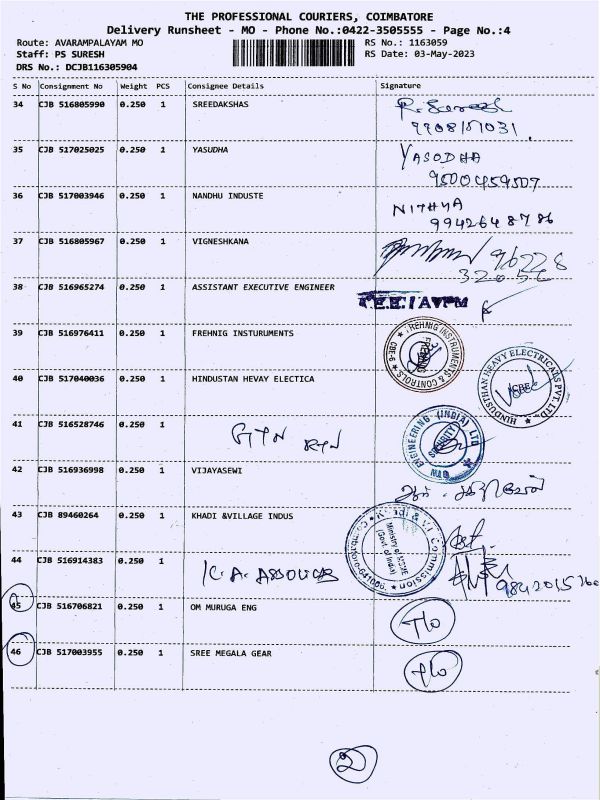 THE PROFESSIONAL COURIERS, COIMBATORE
Delivery Runsheet - MO - Phone No.:0422-3505555 - Page No.:4
Route: AVARAMPALAYAM MO RS No.: 1163059
Staff: PS SURESH RS Date: 03-May-2023
DRS No.: DCJB116305904
S No Consignment No Weight PCS Consignee Details Signature
34 CJB 516805990 0.250 1 SREEDAKSHAS R. Suresh
35 CJB 517025025 0.250 1 YASUDHA YASODHA
9500459507
36 CJB 517003946 0.250 1 NANDHU INDUSTE NITHYA
9942648786
37 CJB 516805967 0.250 1 VIGNESHKANA 96228
32056
38 CJB 516965274 0.250 1 ASSISTANT EXECUTIVE ENGINEER A.E.E./AVPM
39 CJB 516976411 0.250 1 FREHNIG INSTURUMENTS FREHNIG INSTRUMENTS & CONTROLS CBE-6
40 CJB 517040036 0.250 1 HINDUSTAN HEVAY ELECTICA HINDUSTHAN HEAVY ELECTRICALS PVT. LTD. CBE
41 CJB 516528746 0.250 1 GTN ENGINEERING (INDIA) LTD SECURITY
42 CJB 516936998 0.250 1 VIJAYASEWI
43 CJB 89460264 0.250 1 KHADI &VILLAGE INDUS Khadi & V.I. Commission Ministry of MSME (Govt. of India)
44 CJB 516914383 0.250 1 K.A. ASSOCIATES
45 CJB 516706821 0.250 1 OM MURUGA ENG T/O
46 CJB 517003955 0.250 1 SREE MEGALA GEAR T/O
2